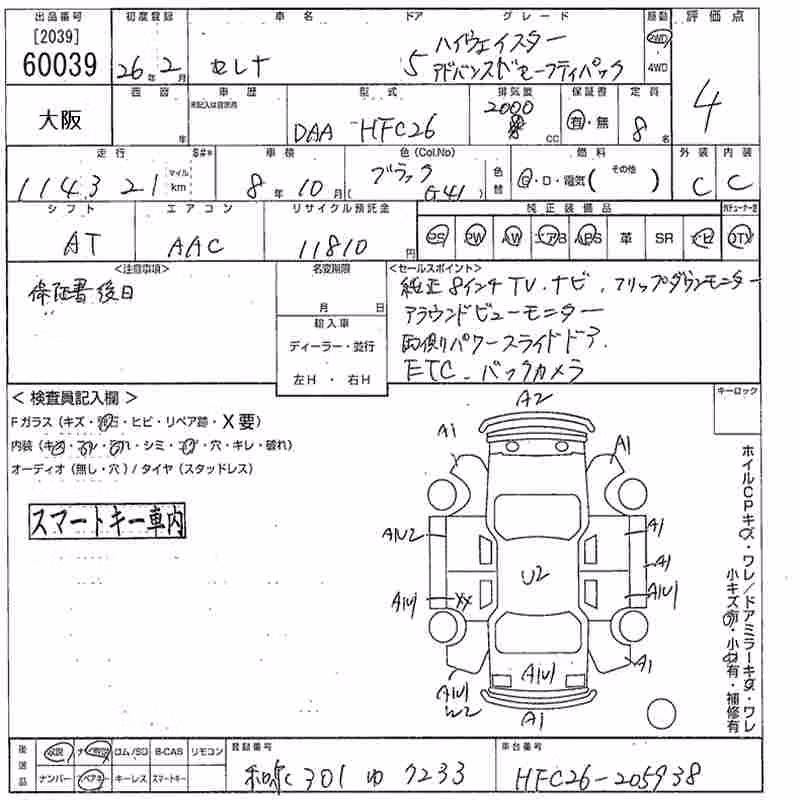 出品番号 初度登録 車名 ドア グレード 駆動 評価点
[2039]
60039 26年 2月 セレナ 5 ハイウェイスター 2WD
アドバンスドセーフティパック 4WD
大阪 西暦 年 車歴 未記入は自家用 型式 排気量 保証書 定員 4
DAA HFC26 2000 cc 有・無 8名
走行 マイル km 車検 色(Col.No) 色替 燃料 外装 内装
114321 8年 10月 ブラック G41 G・D・電気( その他 ) C C
シフト エアコン リサイクル預託金 純正装備品
AT AAC 11810円 PS PW AW エアB ABS 革 SR ナビ TV
<注意事項> 名変期限 <セールスポイント>
保証書後日 月 日 純正8インチTV.ナビ.フリップダウンモニター
輸入車 アラウンドビューモニター
ディーラー・並行 両側パワースライドドア.
左H ・ 右H ETC.バックカメラ
<検査員記入欄> キーロック
Fガラス(キズ・飛石・ヒビ・リペア跡・X要)
内装(キズ・スレ・汚れ・シミ・コゲ・穴・キレ・破れ)
オーディオ(無し・穴)/タイヤ(スタッドレス)
スマートキー車内
A2
A1 A1
A1U2 A1
A1
U2
A1U1 XX A1U1
A1
A1U1 A1U1
W2
A1
ホイルCPキズ・ワレ/ドアミラーキズ・ワレ
小キズ有・小凹有・補修有
後返品 取説 ナビ取説 ロム/SD B-CAS リモコン 登録番号 車台番号
ナンバー スペアキー キーレス スマートキー 301 ゆ 7233 HFC26-205938